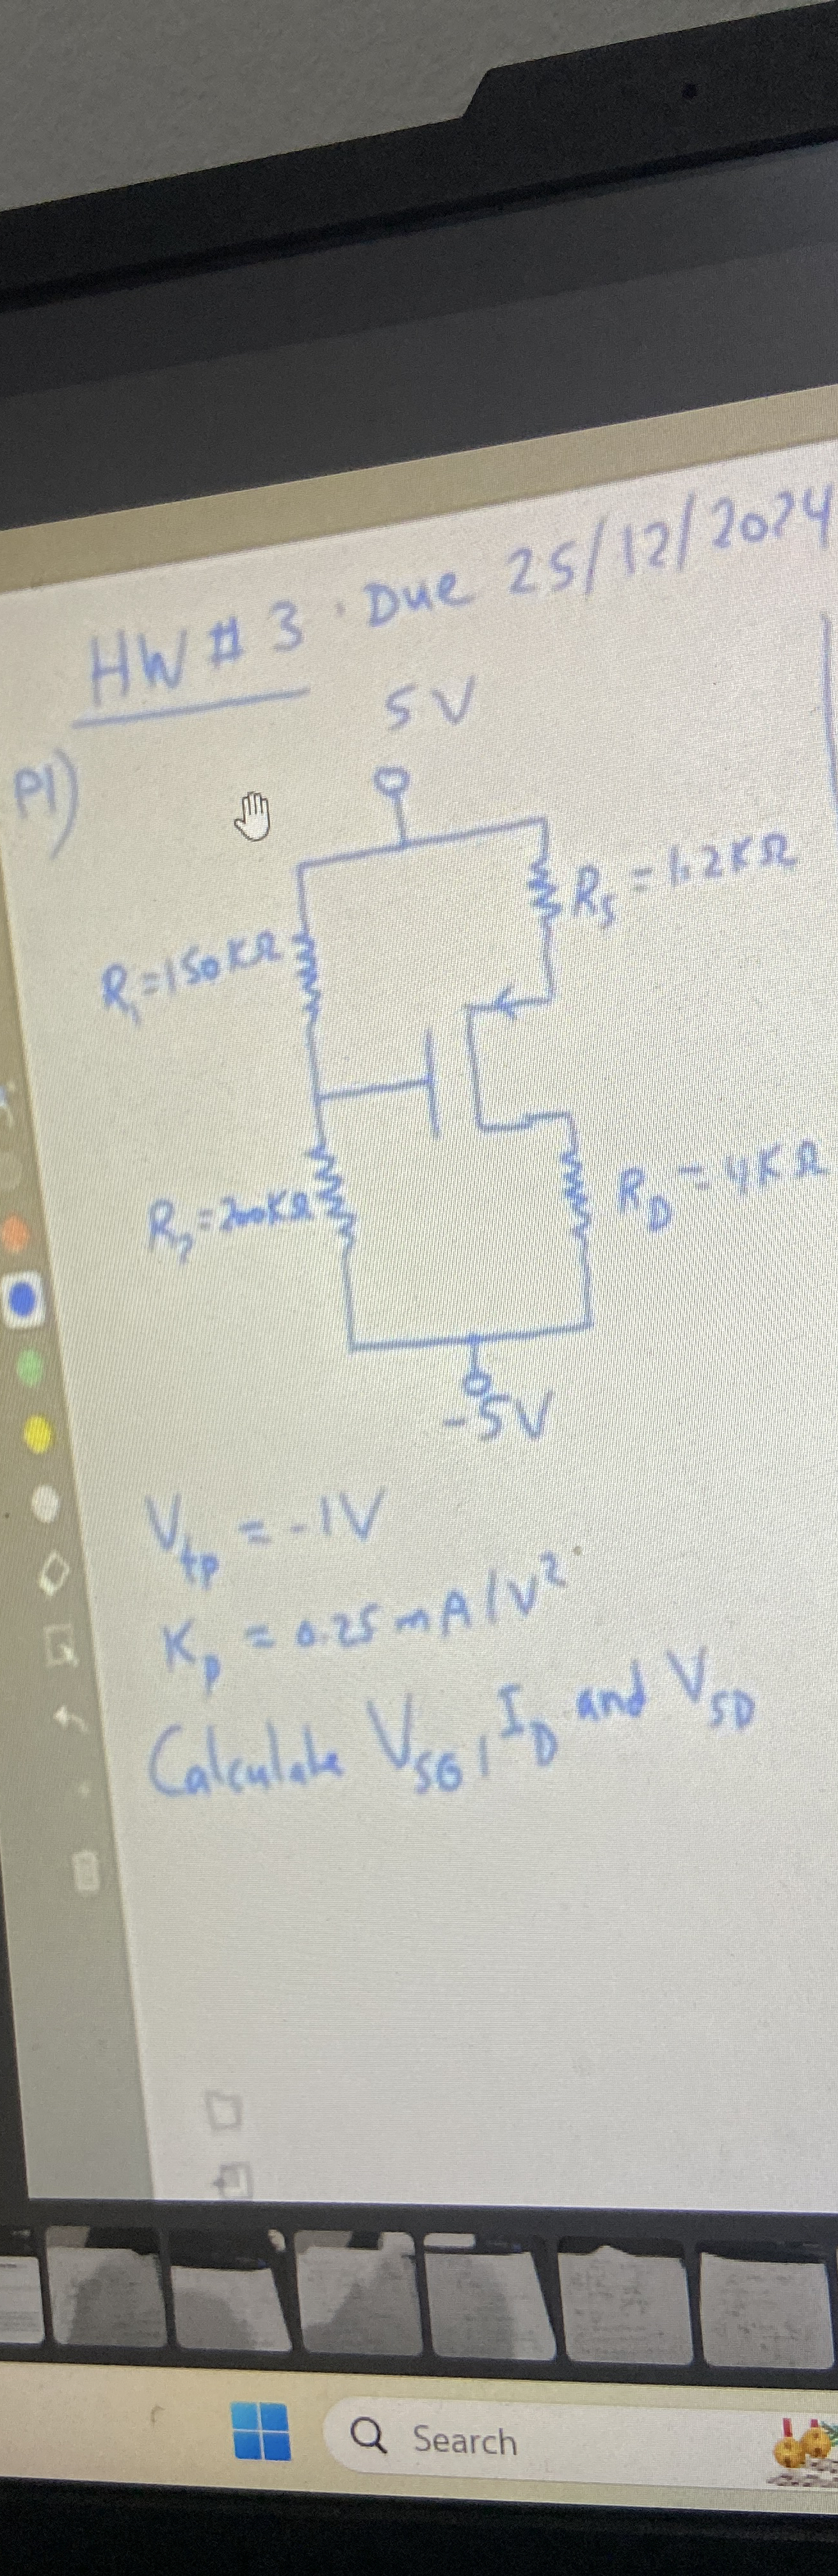 HW # 3 . Due 25/12/2024
P1)
5V
R₁=150KΩ
R_S = 1.2KΩ
R₂=200KΩ
R_D = 4KΩ
-5V
V_tp = -1V
K_p = 0.25 mA/V²
Calculate V_SG, I_D and V_SD
Search